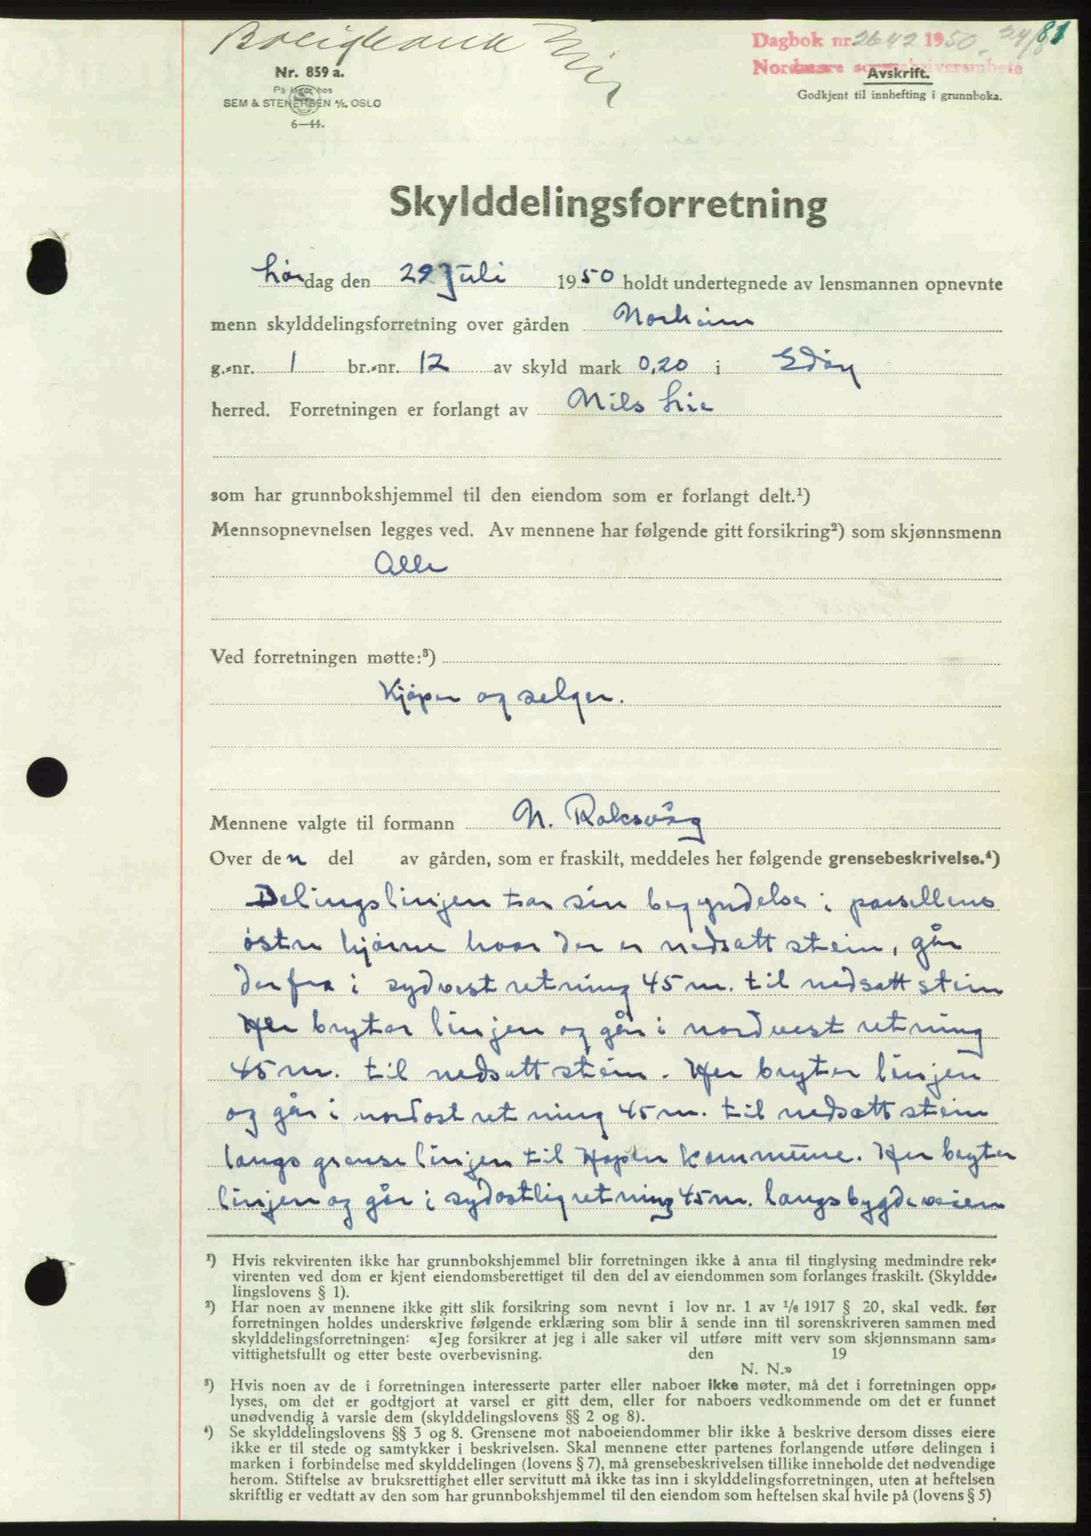 Boligbank
Dagbok nr. 2642 1950 24/8
81
Nordmøre sorenskriverembete
Nr. 859 a.
På lager hos
SEM & STENERSEN A/S, OSLO
6—44.
Avskrift.
Godkjent til innhefting i grunnboka.
Skylddelingsforretning
Lørdag den 29 Juli 1950 holdt undertegnede av lensmannen opnevnte
menn skylddelingsforretning over gården Norheim
g.-nr. 1 br.-nr. 12 av skyld mark 0,20 i Edøy
herred. Forretningen er forlangt av Nils Lie
som har grunnbokshjemmel til den eiendom som er forlangt delt.¹)
Mennsopnevnelsen legges ved. Av mennene har følgende gitt forsikring²) som skjønnsmenn
Alle
Ved forretningen møtte:³)
Kjøper og selger.
Mennene valgte til formann N. Roksvåg
Over den del av gården, som er fraskilt, meddeles her følgende grensebeskrivelse.⁴)
Delingslinjen tar sin begyndelse i parsellens
østre hjørne hvor der er nedsatt stein, går
derfra i sydvest retning 45 m. til nedsatt stein
Her bryter linjen og går i nordvest retning
45 m. til nedsatt stein. Her bryter linjen
og går i nordost retning 45 m. til nedsatt stein
langs grenselinjen til Hopen kommune. Her bryter
linjen og går i sydostlig retning 45 m. langs bygdeveien
¹) Hvis rekvirenten ikke har grunnbokshjemmel blir forretningen ikke å anta til tinglysing medmindre rek-
virenten ved dom er kjent eiendomsberettiget til den del av eiendommen som forlanges fraskilt. (Skyldde-
lingslovens § 1).
²) Har noen av mennene ikke gitt slik forsikring som nevnt i lov nr. 1 av 1/6 1917 § 20, skal vedk. før
forretningen holdes underskrive følgende erklæring som blir å sende inn til sorenskriveren sammen med
skylddelingsforretningen: «Jeg forsikrer at jeg i alle saker vil utføre mitt verv som skjønnsmann sam-
vittighetsfullt og etter beste overbevisning. den 19
N. N.»
³) Hvis noen av de i forretningen interesserte parter eller naboer ikke møter, må det i forretningen opp-
lyses, om det er godtgjort at varsel er gitt dem, eller for naboers vedkommende om det er funnet
unødvendig å varsle dem (skylddelingslovens §§ 2 og 8).
⁴) Se skylddelingslovens §§ 3 og 8. Grensene mot naboeiendommer blir ikke å beskrive dersom disses eiere
ikke er til stede og samtykker i beskrivelsen. Skal mennene etter partenes forlangende utføre delingen i
marken i forbindelse med skylddelingen (lovens § 7), må grensebeskrivelsen tillike inneholde det nødvendige
herom. Stiftelse av bruksrettighet eller servitutt må ikke tas inn i skylddelingsforretningen, uten at heftelsen
skriftlig er vedtatt av den som har grunnbokshjemmel til den eiendom som heftelsen skal hvile på (lovens § 5)